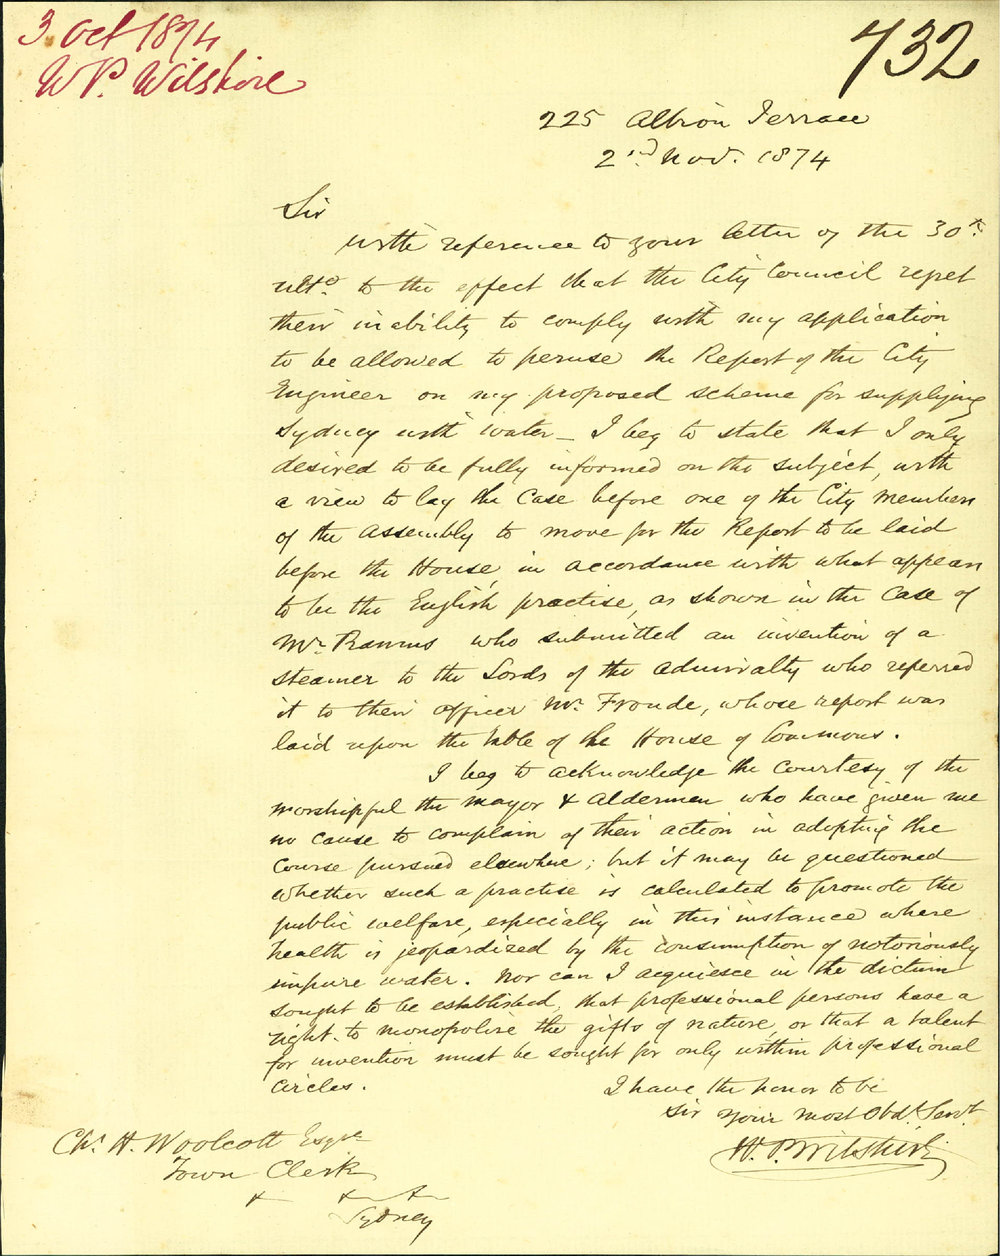 3 Oct 1874
W P. Wilshire
732
225 Albion Terrace
2nd Nov. 1874
Sir
With reference to your letter of the 30th.
ulto. to the effect that the City Council regret
their inability to comply with my application
to be allowed to peruse the Report of the City
Engineer on my proposed scheme for supplying
Sydney with water - I beg to state that I only
desired to be fully informed on the subject, with
a view to lay the case before one of the City members
of the Assembly to move for the Report to be laid
before the House, in accordance with what appears
to be the English practise, as shown in the case of
Mr. Ramus who submitted an invention of a
steamer to the Lords of the Admiralty who referred
it to their officer Mr. Froude, whose report was
laid upon the table of the House of Commons.
I beg to acknowledge the courtesy of the
worshipful the Mayor & Aldermen who have given me
no cause to complain of their action in adopting the
course pursued elsewhere; but it may be questioned
whether such a practise is calculated to promote the
public welfare, especially in this instance where
health is jeopardized by the consumption of notoriously
impure water. Nor can I acquiesce in the dictum
sought to be established, that professional persons have a
right to monopolise the gifts of nature, or that a talent
for invention must be sought for only within professional
circles.
I have the honor to be
Sir your most Obdt. Servt.
W. P. Wilshire
Chs. H. Woolcott Esqre
Town Clerk
Sydney